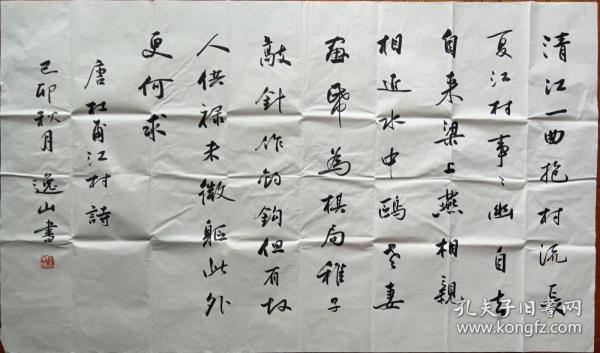 清江一曲抱村流長
夏江村事〻幽自去
自来梁上燕相親
相近水中鷗老妻
畫帋為棋局稚子
敲針作釣鈎但有故
人供禄米微軀此外
更何求
唐杜甫江村詩
己卯秋月 逸山書
孔夫子旧书网
www.kongfz.com